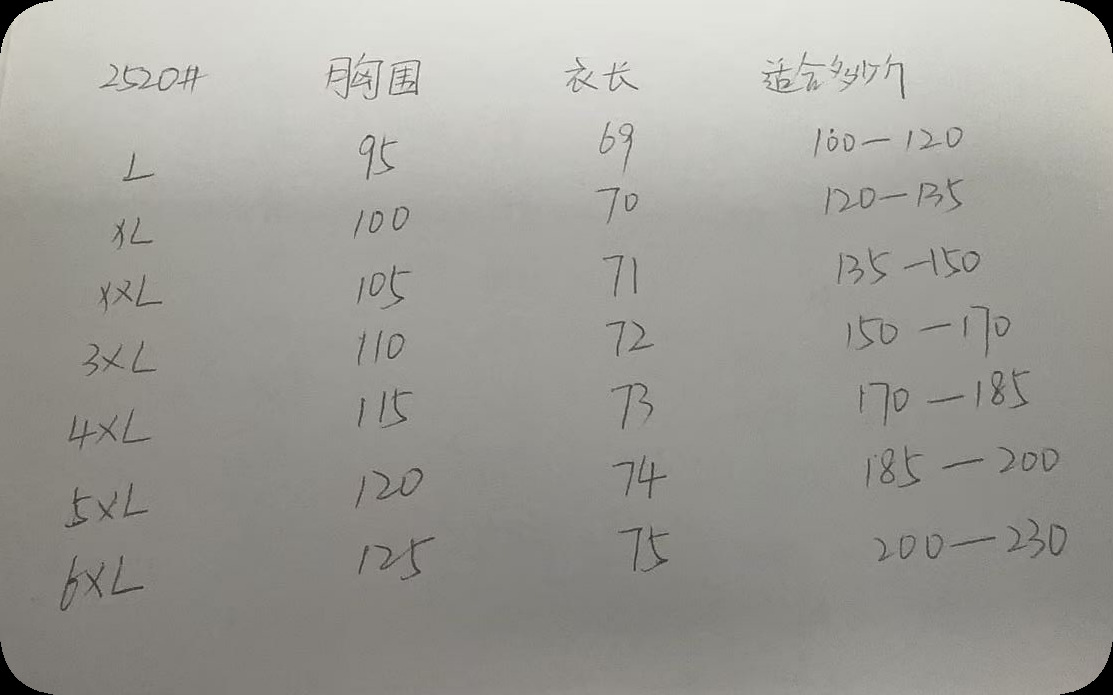 2520# 胸围 衣长 适合多少斤
L 95 69 100—120
XL 100 70 120—135
XXL 105 71 135—150
3XL 110 72 150—170
4XL 115 73 170—185
5XL 120 74 185—200
6XL 125 75 200—230